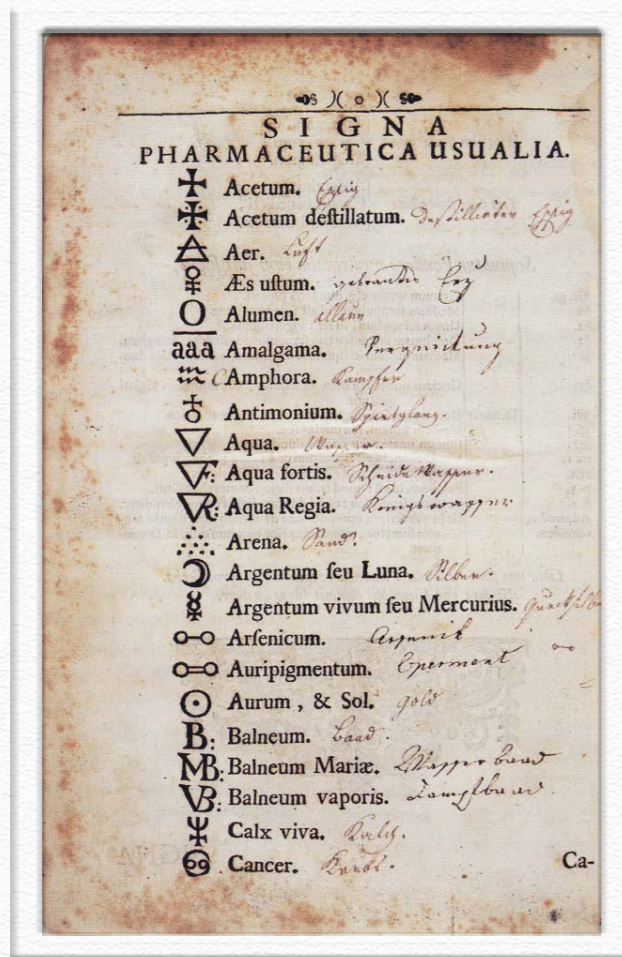 SIGNA
PHARMACEUTICA USUALIA.
Acetum. Essig
Acetum deſtillatum. destillirter Essig
Aer. Luft
Æs uſtum. gebrantes Erz
O Alumen. allaun
aaa Amalgama. Verquickung
CAmphora. Kampfer
Antimonium. Spiesglang.
Aqua. Wasser.
F: Aqua fortis. Scheide Wasser.
R: Aqua Regia. Königswasser
Arena. Sand.
Argentum ſeu Luna. Silber.
Argentum vivum ſeu Mercurius. Quecksilber
Arſenicum. Arsenik
Auripigmentum. Operment
Aurum, & Sol. gold
B: Balneum. Baad.
MB: Balneum Mariæ. Wasser baad
VB: Balneum vaporis. Dampfbaad
Calx viva. Kalch.
Cancer. Krebs.
Ca-